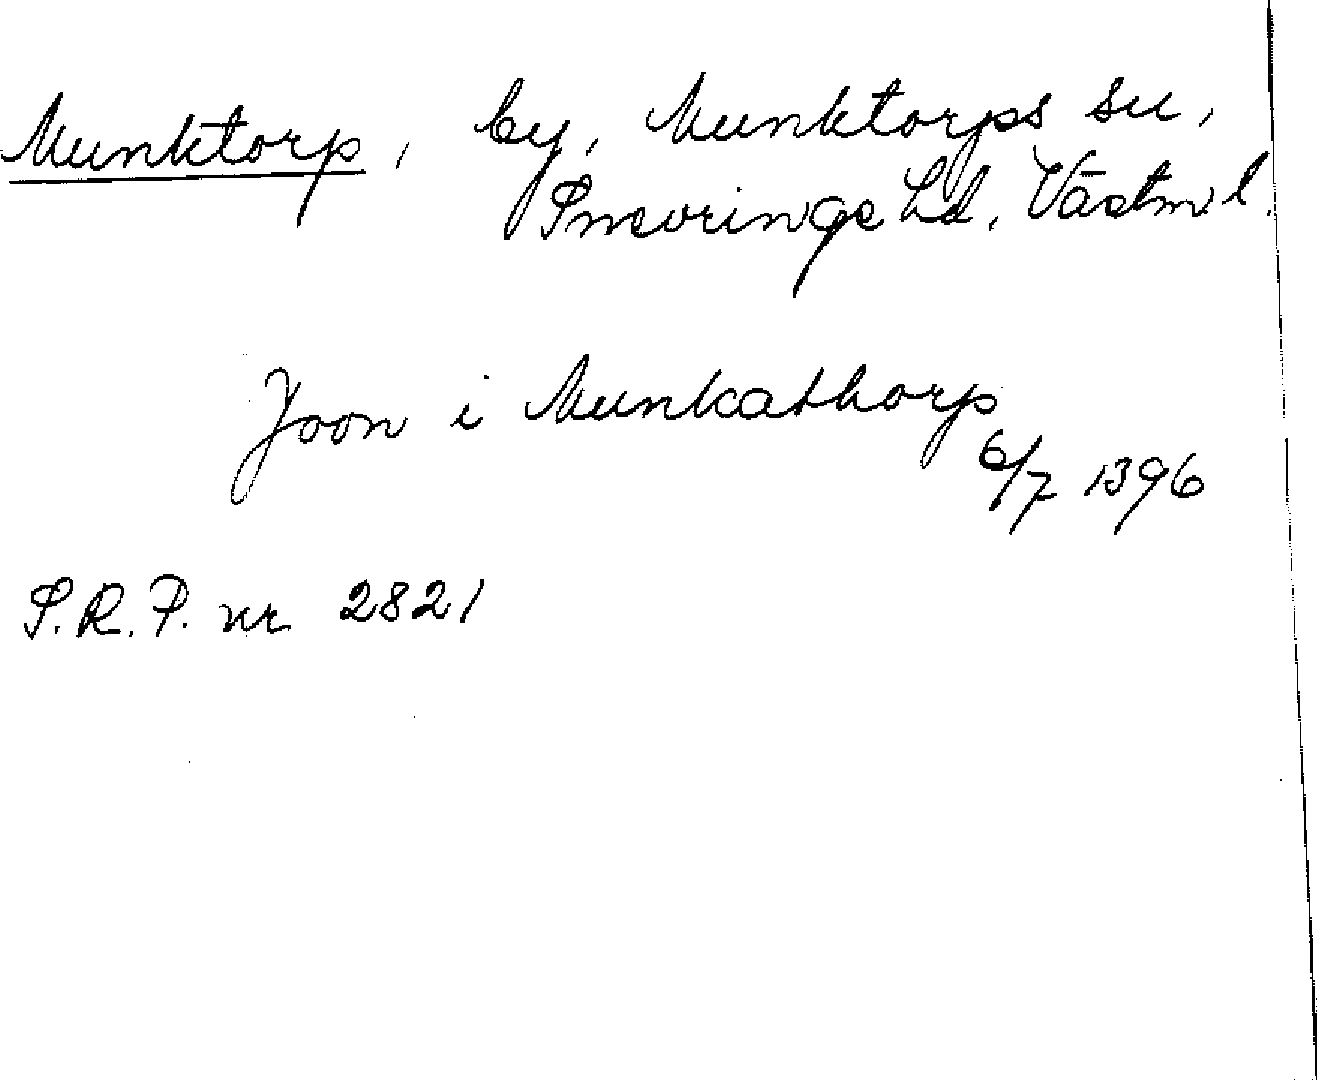 Munktorp, by, Munktorps sn,
Snevringe hd, Västml.
Joon i Munkathorp
6/7 1396
S.R.P. nr 2821